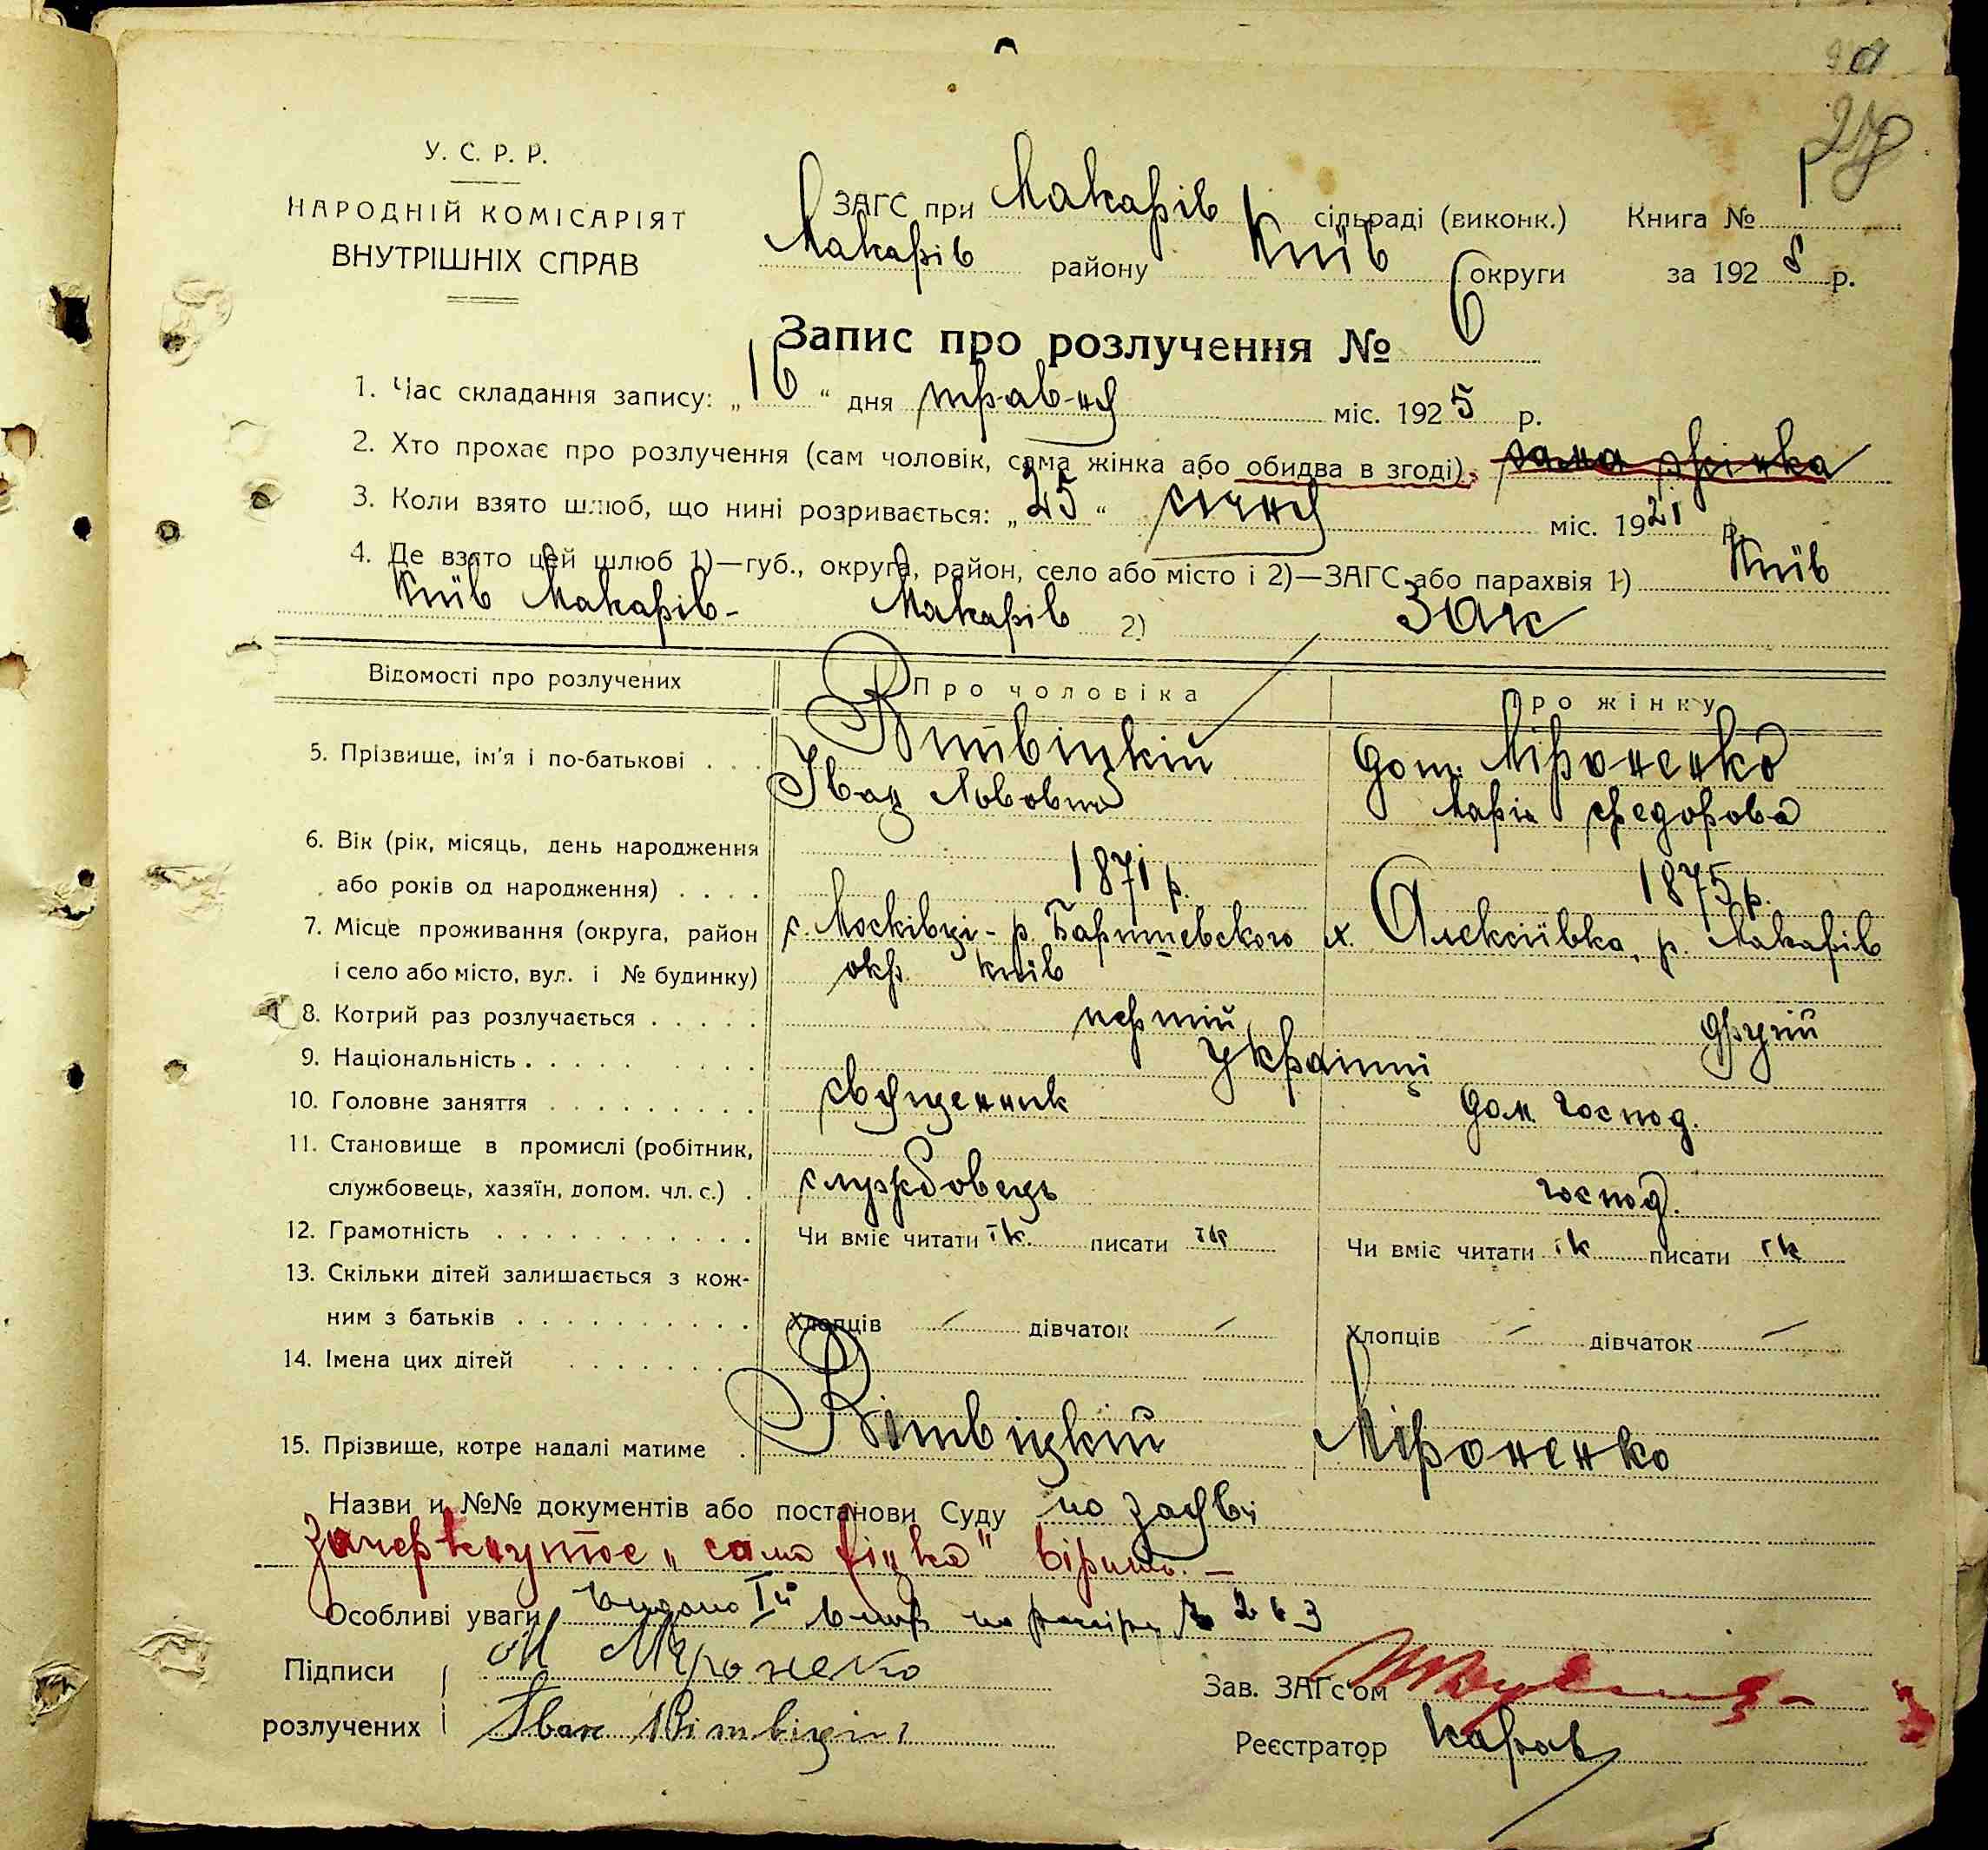 27
У. С. Р. Р.
НАРОДНІЙ КОМІСАРІЯТ
ВНУТРІШНІХ СПРАВ
ЗАГС при Макарів сільраді (виконк.) Книга № 1
Макарів району Київ округи за 1925 р.
Запис про розлучення № 6
1. Час складання запису: „16“ дня травня міс. 1925 р.
2. Хто прохає про розлучення (сам чоловік, сама жінка або обидва в згоді), сама жінка
3. Коли взято шлюб, що нині розривається: „25“ січня міс. 1921 р.
4. Де взято цей шлюб 1)—губ., округа, район, село або місто і 2)—ЗАГС або парахвія 1) Київ
Київ Макарів- Макарів 2) ЗАГС
Відомості про розлучених Про чоловіка Про жінку
5. Прізвище, ім'я і по-батькові . . . Вітвіцкій
Іван Львович
Міроненко
Марія Федорова
6. Вік (рік, місяць, день народження
або років од народження) . . . . 1871 р. 1875 р.
7. Місце проживання (округа, район
і село або місто, вул. і № будинку)
с. Москівці - р. Баришевского
окр. Київ
х. Алексіївка, р. Макарів
8. Котрий раз розлучається . . . . . перший другий
9. Національність . . . . . . . . . Українці
10. Головне заняття . . . . . . . . . священник дом. господ.
11. Становище в промислі (робітник,
службовець, хазяїн, допом. чл. с.) . службовець господ.
12. Грамотність . . . . . . . . . . . Чи вміє читати так писати так Чи вміє читати так писати так
13. Скільки дітей залишається з кож-
ним з батьків . . . . . . . . . . Хлопців — дівчаток — Хлопців — дівчаток —
14. Імена цих дітей . . . . . . .
15. Прізвище, котре надалі матиме . Вітвіцкій Міроненко
Назви и №№ документів або постанови Суду по заяві
Зачеркнутое „сама жінка" вірить. —
Особливі уваги Видано Iй № 263
Підписи
розлучених
М Мироненко
Іван Вітвіцкій
Зав. ЗАГс'ом
Реєстратор